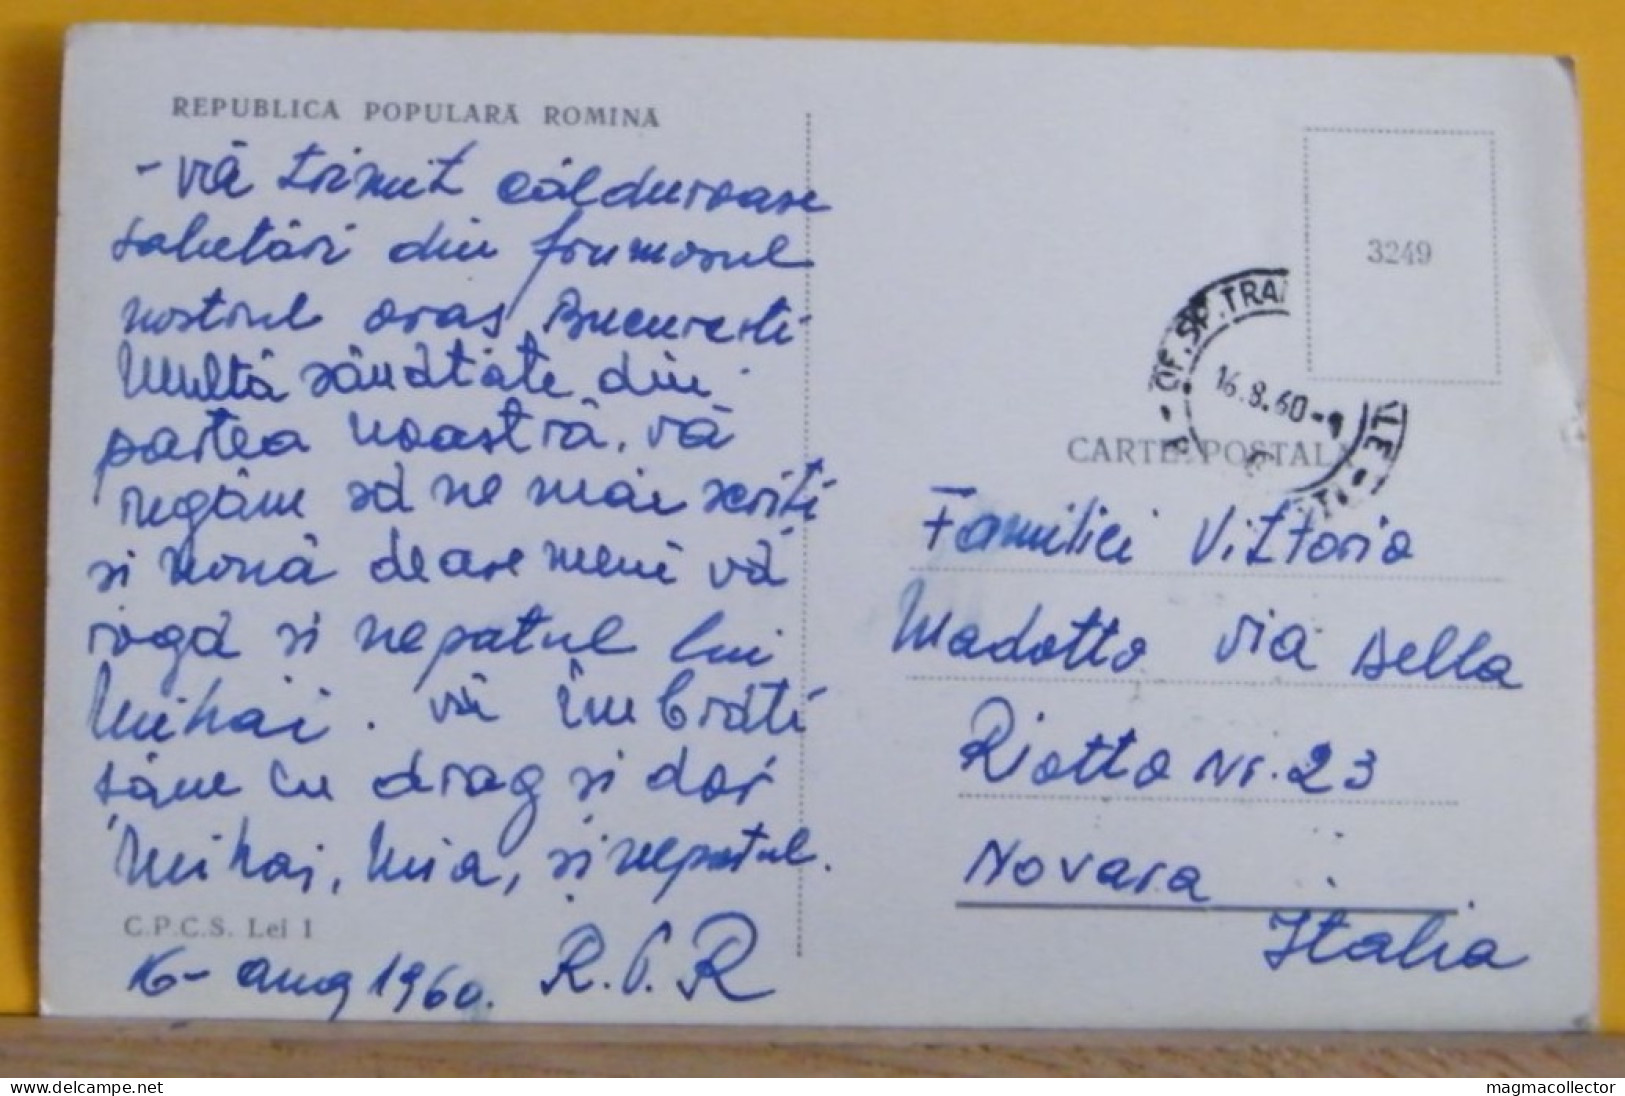 REPUBLICA POPULARĂ ROMINĂ
- vă trimit călduroase
salutări din frumosul
nostrul oraș București
Multă sănătate din
partea noastră, vă
regăm să ne mai scriți
și nouă deasemeni vă
roagă și nepatul lui
Mihai. vă îmbrăți
săm cu drag și dor
Mihai, Mia, și nepatul.
C.P.C.S. Lei 1
16- aug 1960. R.P.R
3249
OF.SP.TRA
16.8.60-
CARTE POSTALA
Familiei Vittorio
Madotto Via Della
Riotto Nr. 23
Novara
Italia
www.delcampe.net
magmacollector